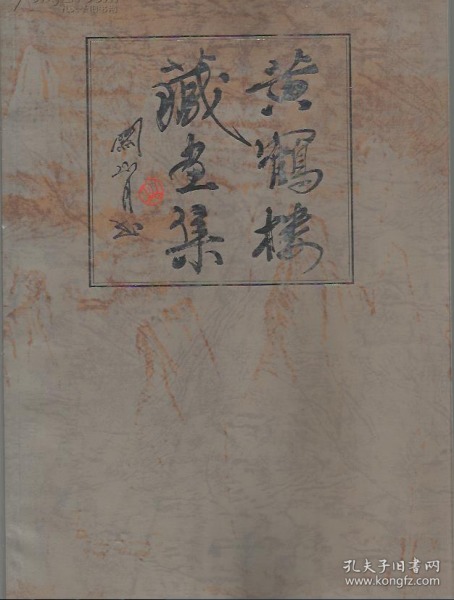 黄鹤楼
藏画集
關山月
孔夫子旧书网
www.kongfz.com